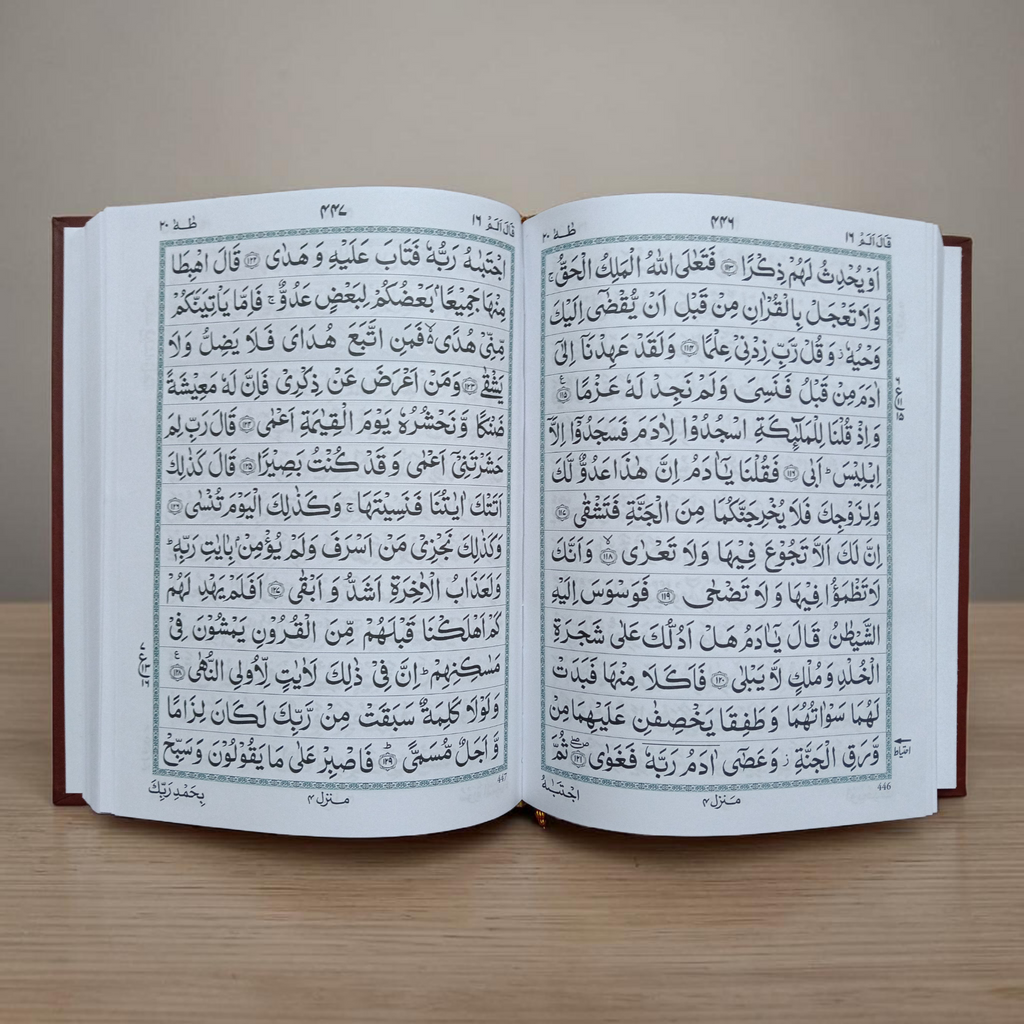 قَالَ اَلَمْ ١٦
٤٤٦
طٰهٰ ٢٠
اَوْ يُحْدِثُ لَهُمْ ذِكْرًا ﴿١١٣﴾ فَتَعٰلَى اللّٰهُ الْمَلِكُ الْحَقُّ ۚ
وَلَا تَعْجَلْ بِالْقُرْاٰنِ مِنْ قَبْلِ اَنْ يُّقْضٰۤى اِلَيْكَ
وَحْيُهٗ ؗ وَقُلْ رَّبِّ زِدْنِيْ عِلْمًا ﴿١١٤﴾ وَلَقَدْ عَهِدْنَاۤ اِلٰۤى
اٰدَمَ مِنْ قَبْلُ فَنَسِيَ وَلَمْ نَجِدْ لَهٗ عَزْمًا ﴿١١٥﴾
وَاِذْ قُلْنَا لِلْمَلٰٓئِكَةِ اسْجُدُوْا لِاٰدَمَ فَسَجَدُوْۤا اِلَّاۤ
اِبْلِيْسَ ؕ اَبٰى ﴿١١٦﴾ فَقُلْنَا يٰۤاٰدَمُ اِنَّ هٰذَا عَدُوٌّ لَّكَ
وَلِزَوْجِكَ فَلَا يُخْرِجَنَّكُمَا مِنَ الْجَنَّةِ فَتَشْقٰى ﴿١١٧﴾
اِنَّ لَكَ اَلَّا تَجُوْعَ فِيْهَا وَلَا تَعْرٰى ﴿١١٨﴾ وَاَنَّكَ
لَا تَظْمَؤُا فِيْهَا وَلَا تَضْحٰى ﴿١١٩﴾ فَوَسْوَسَ اِلَيْهِ
الشَّيْطٰنُ قَالَ يٰۤاٰدَمُ هَلْ اَدُلُّكَ عَلٰى شَجَرَةِ
الْخُلْدِ وَمُلْكٍ لَّا يَبْلٰى ﴿١٢٠﴾ فَاَكَلَا مِنْهَا فَبَدَتْ
لَهُمَا سَوْاٰتُهُمَا وَطَفِقَا يَخْصِفٰنِ عَلَيْهِمَا مِنْ
وَّرَقِ الْجَنَّةِ ؗ وَعَصٰۤى اٰدَمُ رَبَّهٗ فَغَوٰى ﴿١٢١﴾ ثُمَّ
446
منزل ٤
اجْتَبٰىهُ
قَالَ اَلَمْ ١٦
٤٤٧
طٰهٰ ٢٠
اجْتَبٰىهُ رَبُّهٗ فَتَابَ عَلَيْهِ وَهَدٰى ﴿١٢٢﴾ قَالَ اهْبِطَا
مِنْهَا جَمِيْعًۢا بَعْضُكُمْ لِبَعْضٍ عَدُوٌّ ۚ فَاِمَّا يَاْتِيَنَّكُمْ
مِّنِّيْ هُدًى ۬ۙ فَمَنِ اتَّبَعَ هُدَايَ فَلَا يَضِلُّ وَلَا
يَشْقٰى ﴿١٢٣﴾ وَمَنْ اَعْرَضَ عَنْ ذِكْرِيْ فَاِنَّ لَهٗ مَعِيْشَةً
ضَنْكًا وَّنَحْشُرُهٗ يَوْمَ الْقِيٰمَةِ اَعْمٰى ﴿١٢٤﴾ قَالَ رَبِّ لِمَ
حَشَرْتَنِيْۤ اَعْمٰى وَقَدْ كُنْتُ بَصِيْرًا ﴿١٢٥﴾ قَالَ كَذٰلِكَ
اَتَتْكَ اٰيٰتُنَا فَنَسِيْتَهَا ۚ وَكَذٰلِكَ الْيَوْمَ تُنْسٰى ﴿١٢٦﴾
وَكَذٰلِكَ نَجْزِيْ مَنْ اَسْرَفَ وَلَمْ يُؤْمِنْۢ بِاٰيٰتِ رَبِّهٖ ؕ
وَلَعَذَابُ الْاٰخِرَةِ اَشَدُّ وَاَبْقٰى ﴿١٢٧﴾ اَفَلَمْ يَهْدِ لَهُمْ
كَمْ اَهْلَكْنَا قَبْلَهُمْ مِّنَ الْقُرُوْنِ يَمْشُوْنَ فِيْ
مَسٰكِنِهِمْ ؕ اِنَّ فِيْ ذٰلِكَ لَاٰيٰتٍ لِّاُولِي النُّهٰى ﴿١٢٨﴾
وَلَوْلَا كَلِمَةٌ سَبَقَتْ مِنْ رَّبِّكَ لَكَانَ لِزَامًا
وَّاَجَلٌ مُّسَمًّى ﴿١٢٩﴾ فَاصْبِرْ عَلٰى مَا يَقُوْلُوْنَ وَسَبِّحْ
447
منزل ٤
بِحَمْدِ رَبِّكَ